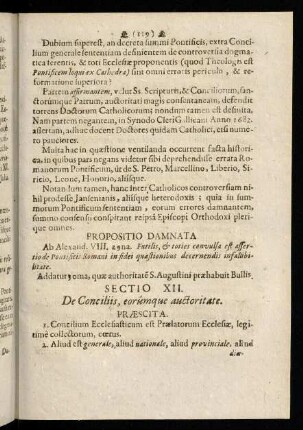 (119)
Dubium superest, an decreta summi Pontificis, extra Concilium
generale sententiam definientem de controversia dogmatica
ferentis, & toti Ecclesiæ proponentis (quod Theologis est
Pontificem loqui ex Cathedra) sint omni erratis periculo, & reformatione
superiora?
Partem affirmantem, velut Ss. Scripturis, & Conciliorum, sanctorumque
Patrum, auctoritati magis consentaneam, defendit
totrens Doctorum Catholicorum nondum tamen est definita,
Nam partem negantem, in Synodo Cleri Gallicani Anno 1682.
assertam, adhuc docent Doctores quidam Catholici, etsi numero
pauciores.
Multa hac in quæstione ventilanda occurrent facta historica,
in quibus pars negans videtur sibi deprehendisse errata Romanorum
Pontificum, ut de S. Petro, Marcellino, Liberio, Siricio,
Leone, Honorio, aliisque.
Notandum tamen, hanc inter Catholicos controversiam nihil
prodesse Jansenianis, aliisque heterodoxis; quia in summorum
Pontificum sententiam, eorum errores damnantem,
summo consensu conspirant reipsa Episcopi Orthodoxi plerique
omnes.
PROPOSITIO DAMNATA
Ab Alexand. VIII, 29na. Futilis, & toties convulsa est assertio
de Pontificis Romani in fidei quæstionibus decernendis infallibilitate.
Addatur 30ma, quæ authoritatē S. Augustini præhabuit Bullis.
SECTIO XII.
De Conciliis, eorúmque auctoritate.
PRÆSCITA.
1. Concilium Ecclesiasticum est Prælatorum Ecclesiæ, legitimè
collectorum, cœtus.
2. Aliud est generale, aliud nationale, aliud provinciale, aliud